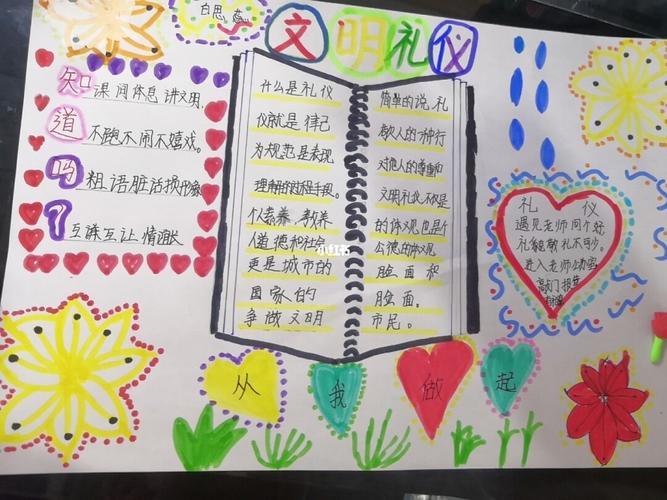 文明礼仪
知
课间休息讲文明,
道
不跑不闹不嬉戏。
吗
粗语脏话损形象
?
互谅互让情谊长
什么是礼仪
仪就是律己
为规范是表现
理解的过程手段。
个人素养、教养
人道德和社会
更是城市的
国家的
争做文明
简单的说,礼
敬人的一种行
对他人的尊重和
文明礼仪不仅是
的体现,也是个
公德的体现
脸面和
脸面.
市民。
小红书
礼仪
遇见老师问个好
礼貌敬礼不可少。
进入老师办公室
敲门报告
从我做起